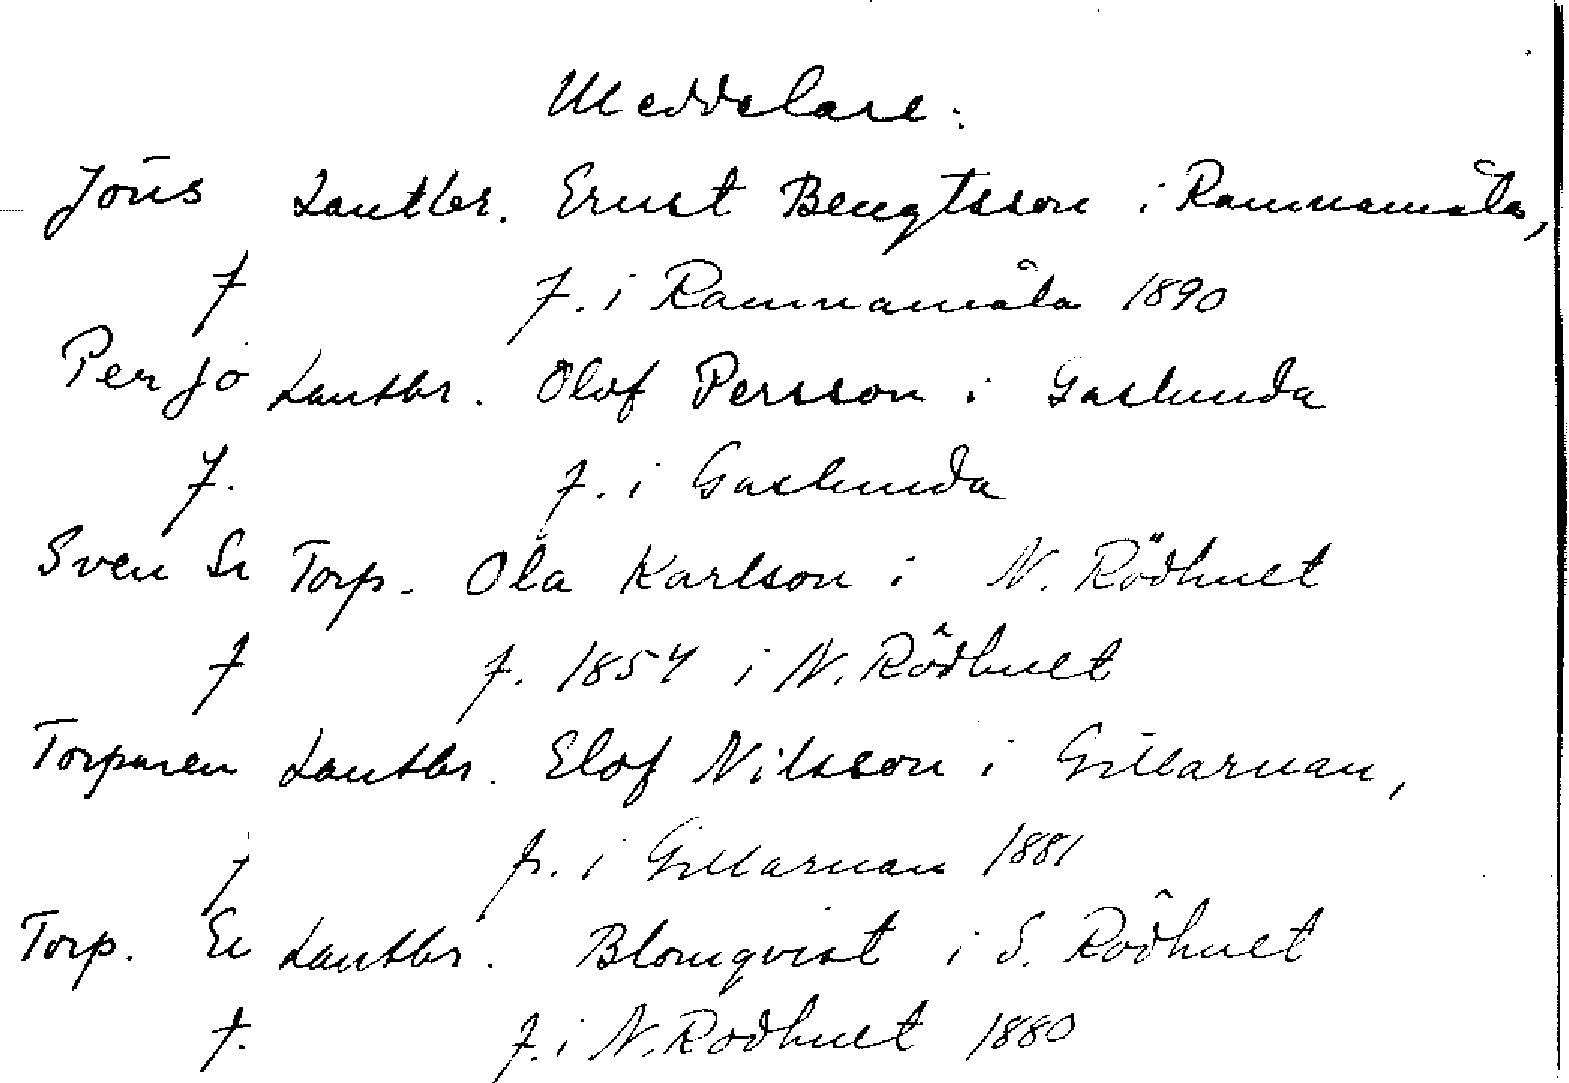 Meddelare:
Jöns Lantbr. Ernst Bengtsson i Ramnamåla,
f f. i Ramnamåla 1890
Per Jo Lantbr. Olof Persson i Gaslunda
f. f. i Gaslunda
Sven Torp. Ola Karlson i N. Rödhult
f f. 1854 i N. Rödhult
Torparen Lantbr. Elof Nilsson i Gillarnan,
f f. i Gillarnan 1881
Torp. Lantbr. Blomqvist i S. Rödhult
f. f. i N. Rödhult 1880